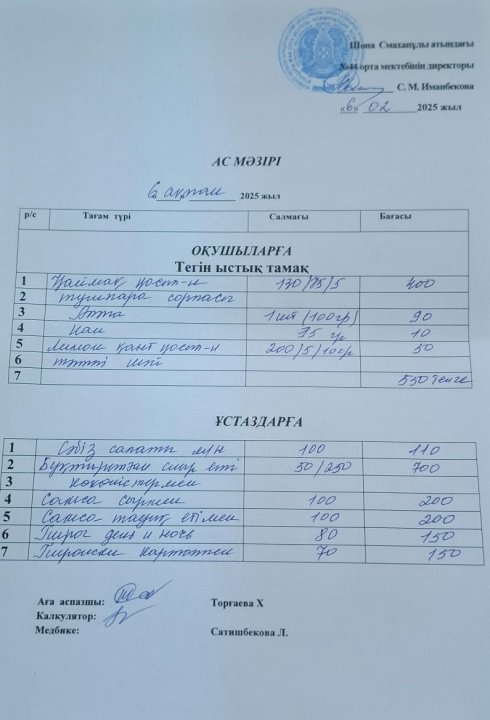 Шона Смаханұлы атындағы
№44 орта мектебінің директоры
С. М. Иманбекова
«6» 02 2025 жыл
АС МӘЗІРІ
6 ақпан 2025 жыл
р/с Тағам түрі Салмағы Бағасы
ОҚУШЫЛАРҒА
Тегін ыстық тамақ
1 Қаймақ қосыл-н 130/75/5 400
2 тұшпара сорпасы
3 Алма 1шт (100гр) 90
4 Нан 75 гр 10
5 Лимон қант қосыл-н 200/5/10гр 50
6 тәтті шай
7 550 теңге
ҰСТАЗДАРҒА
1 Сәбіз салаты 100 110
2 Бұқтырылған сиыр еті 50/250 700
3 көкөністермен
4 Самса сырмен 100 200
5 Самса тауық етімен 100 200
6 Пирог день и ночь 80 150
7 Пирожки картоппен 70 150
Аға аспазшы: Торғаева Х
Калкулятор:
Медбике: Сатишбекова Л.